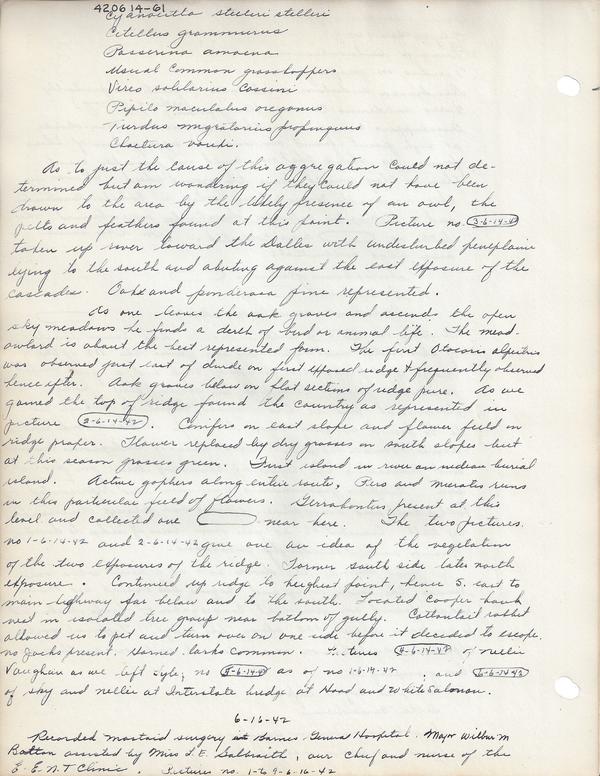 420614-61
Cyanocitta stelleri stelleri
Citellus grammurus
Passerina amoena
Usual Common grasshoppers
Vireo solitarius cassini
Pipilo maculatus oregonus
Turdus migratorius propinquus
Chaetura vauxi.
As to just the cause of this aggregation could not de-
termined but am wondering if they could not have been
drawn to the area by the likely presence of an owl, the
pellts and feathers found at this point. Picture no. 3-6-14-42
taken up river toward the Dalles with undisturbed peneplaine
lying to the south and abuting against the east exposure of the
cascades. Oaks and ponderosa pine represented.
As one leaves the oak groves and ascends the open
sky meadows he finds a derth of bird or animal life. The mead-
owlark is about the best represented form. The first Otocoris alpestris
was observed just east of divide on first exposed ridge & frequently observed
hence after. Oak groves below on flat sections of ridge pure. As we
gained the top of ridge found the country as represented in
picture 2-6-14-42. Conifers on east slope and flower field on
ridge proper. Flower replaced by dry grasses on south slopes but
at this season grasses green. First island in river an indian burial
island. Active gophers along entire route. Pero and microtus runs
in this particular field of flowers. Gerrahontus present at this
level and collected one near here. The two pictures
no 1-6-14-42 and 2-6-14-42 give one an idea of the vegetation
of the two exposures of the ridge. Former south side later north
exposure. Continued up ridge to heighest point, hence S. east to
main highway far below and to the south. Located cooper hawk
nest in isolated tree group near bottom of gully. Cottontail rabbit
allowed us to pet and turn over on one side before it decided to escape.
no Jacks present. Horned larks common. Pictures 4-6-14-42 of nellie
Vaughan as we left Lyle; no 5-6-14-42 as of no 1-6-14-42; and 6-6-14-42
of sky and nellie at Interstate bridge at Hood and White Salmon.
6-16-42
Recorded mastoid surgery at Barnes General Hospital. Major Wilbur M
Bolton assisted by Miss I. E. Galbraith, our chief and nurse of the
E. E. N. T Clinic. Pictures no. 1-6 9-6-16-42